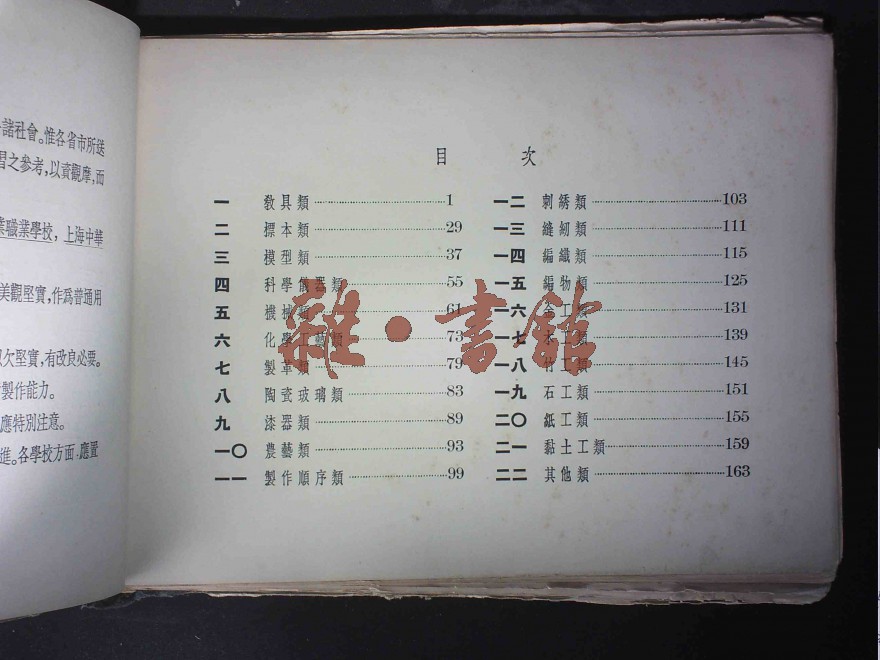 諸社會。惟各省市所送
習之參考，以資觀摩，而
業職業學校，上海中華
美觀堅實，作爲普通用
欠堅實，有改良必要。
製作能力。
應特別注意。
進。各學校方面，應置
目 次
一 敎具類 1
二 標本類 29
三 模型類 37
四 科學儀器類 55
五 機械類 61
六 化學工藝類 73
七 製革類 79
八 陶瓷玻璃類 83
九 漆器類 89
一〇 農藝類 93
一一 製作順序類 99
一二 刺綉類 103
一三 縫紉類 111
一四 編織類 115
一五 編物類 125
一六 金工類 131
一七 木工類 139
一八 竹工類 145
一九 石工類 151
二〇 紙工類 155
二一 黏土工類 159
二二 其他類 163
雜·書館